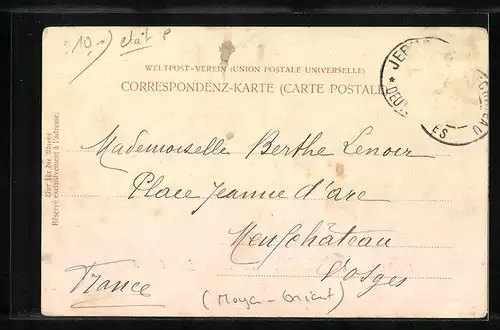 10,-) état P
WELTPOST-VEREIN (UNION POSTALE UNIVERSELLE)
CORRESPONDENZ-KARTE (CARTE POSTALE)
JER
ES
Nur für die Adresse
Réservé exclusivement à l'adresse.
Mademoiselle Berthe Lenoir
Place Jeanne d'arc
Neufchâteau
Vosges
France
(Moyen-Orient)